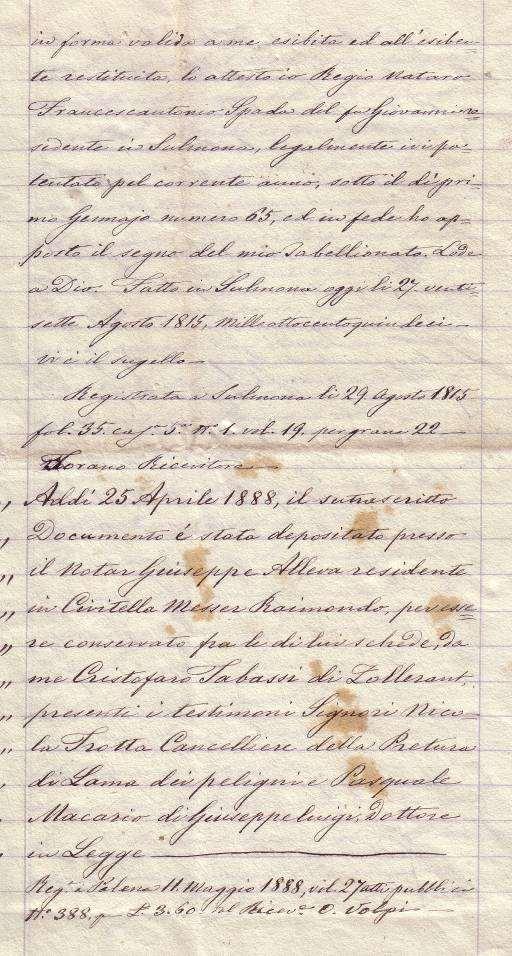 in forma valida a me esibita ed all'esiben=
te restituita, lo attesto io Regio Notaro
Francescantonio Spada del fu Giovanni re=
sidente in Sulmona, legalmente ivi pa=
tentato pel corrente anno, sotto il dì pri=
mo Gennajo numero 65, ed in fede ho ap=
posto il segno del mio Tabellionato. Lode
a Dio. Fatto in Sulmona oggi li 27 venti=
sette Agosto 1815, milleottocentoquindeci—
vi è il sugello—
Registrata a Sulmona li 29 Agosto 1815
fol. 35. cas. 5ª Nº 1. vol. 19. per grana 22—
Ricevitore—
„ Addì 25 Aprile 1888, il sutrascritto
„ Documento é stato depositato presso
„ il Notar Giuseppe Alleva residente
„ in Civitella Messer Raimondo, per esse=
„ re conservato fra le di lui schede, da
„ me Cristofaro Tabassi di
„ presenti i testimoni Signori Nico=
„ la Trotta Cancelliere della Pretura
di Lama dei peligni e Pasquale
Macario di Giuseppeluigi, Dottore
in Legge —
Reg. a Palena 11. Maggio 1888, vol. 27 atti pubblici
Nº 388. p L. 3.60. Il Ricev.e O. Volpi—